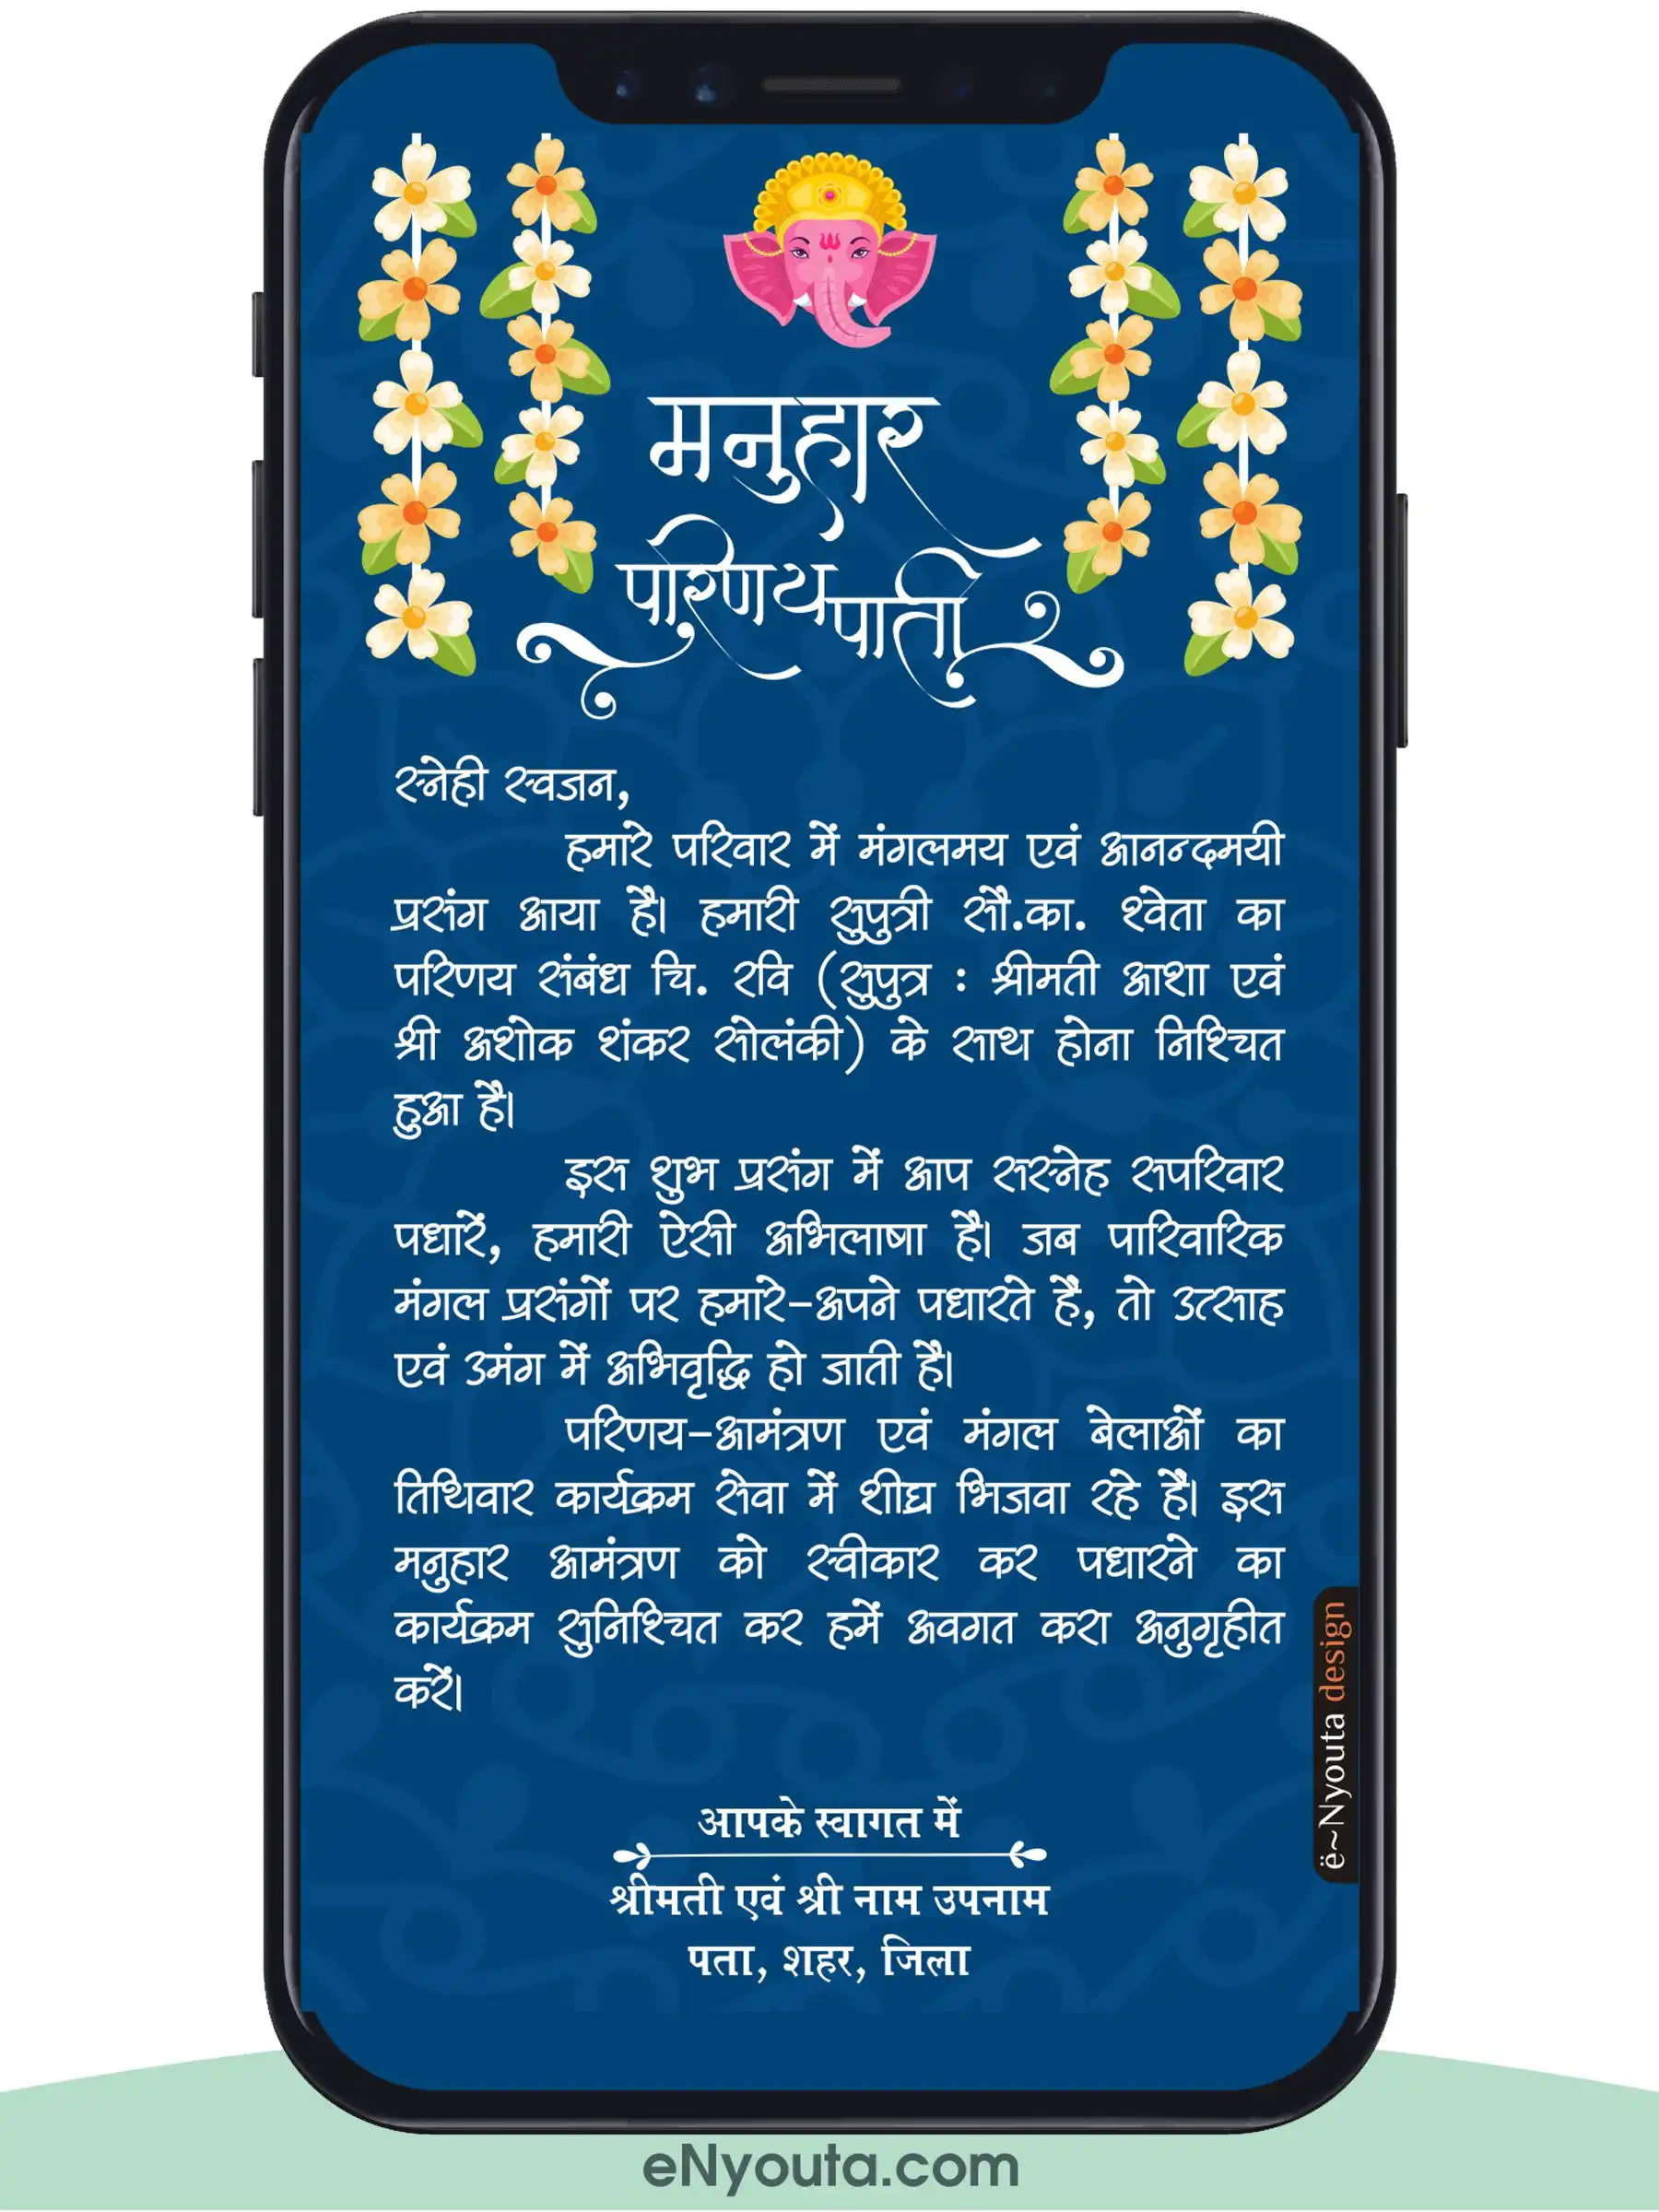 मनुहार
परिणय पाती
स्नेही स्वजन,
हमारे परिवार में मंगलमय एवं आनन्दमयी
प्रसंग आया है। हमारी सुपुत्री सौ.का. श्वेता का
परिणय संबंध चि. रवि (सुपुत्र : श्रीमती आशा एवं
श्री अशोक शंकर सोलंकी) के साथ होना निश्चित
हुआ है।
इस शुभ प्रसंग में आप सस्नेह सपरिवार
पधारें, हमारी ऐसी अभिलाषा है। जब पारिवारिक
मंगल प्रसंगों पर हमारे-अपने पधारते हैं, तो उत्साह
एवं उमंग में अभिवृद्धि हो जाती है।
परिणय-आमंत्रण एवं मंगल बेलाओं का
तिथिवार कार्यक्रम सेवा में शीघ्र भिजवा रहे हैं। इस
मनुहार आमंत्रण को स्वीकार कर पधारने का
कार्यक्रम सुनिश्चित कर हमें अवगत करा अनुगृहीत
करें।
आपके स्वागत में
श्रीमती एवं श्री नाम उपनाम
पता, शहर, जिला
ë~Nyouta design
eNyouta.com